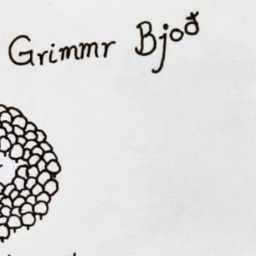 Grimmr Bjoð